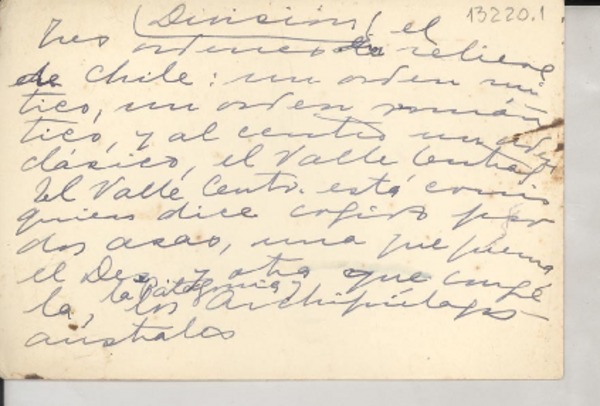 13220.1
(División) el
tres ordenes en relieve
de Chile: un orden mí
tico, un orden román
tico, y al centro un orden
clásico, el Valle Central
El Valle Centr. está como
quien dice cogido por
dos asas, una que quema
el Des. y otra que conge
la, la Patagonia y los Archipiélagos
australes